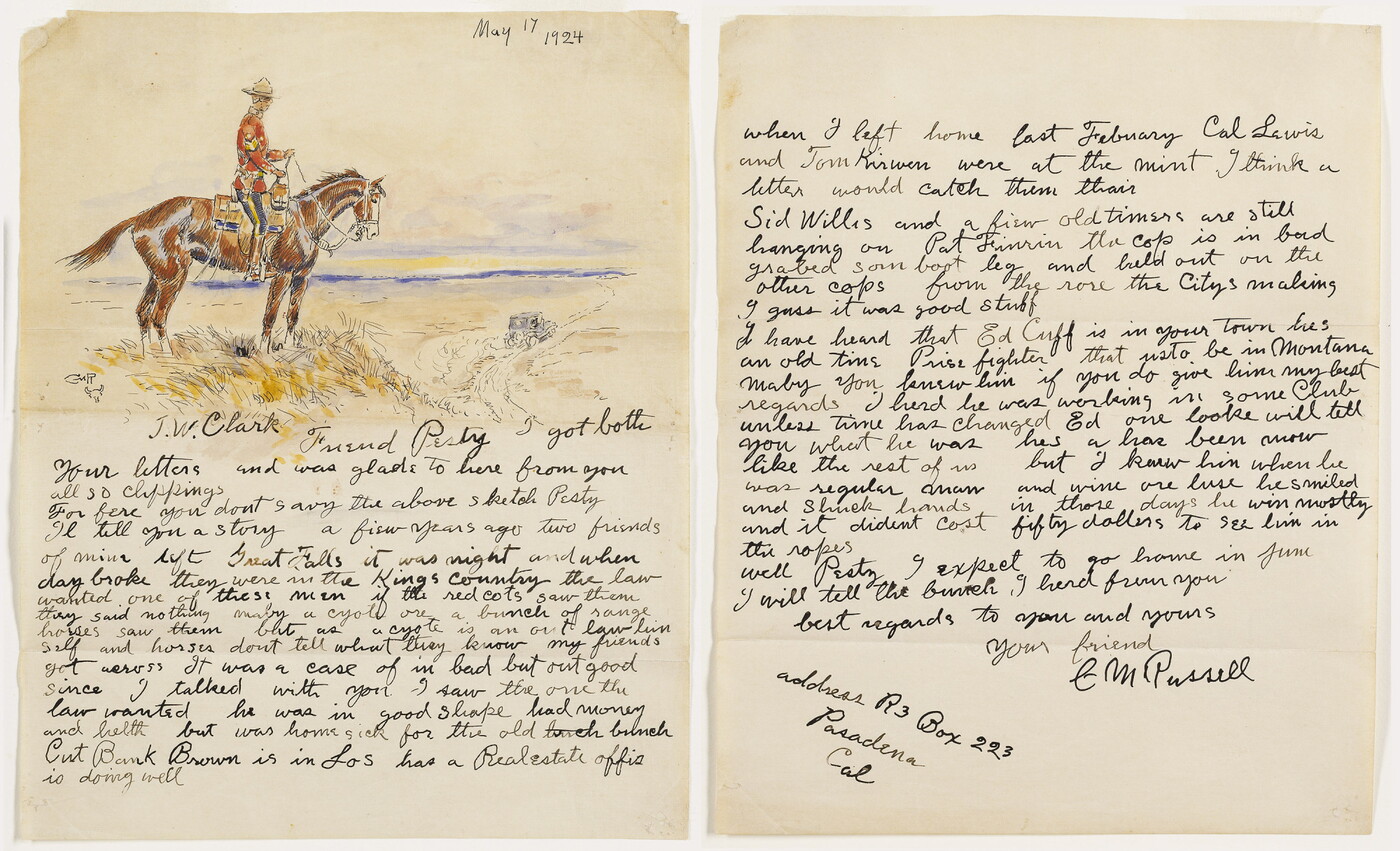 May 17 1924
CMR
J.W. Clark
Friend Pesty I got both
Your letters and was glade to here from you
all so clippings
For fere you dont savy the above sketch Pesty
Il tell you a story a fiew years ago two friends
of mine left Great Falls it was night and when
day broke they were in the Kings country the law
wanted one of these men if the red cots saw them
they said nothing maby a cyote ore a bunch of range
horses saw them but as a cyote is an out law him
self and horses dont tell what they know my friends
got across It was a case of in bad but out good
since I talked with you I saw the one the
law wanted he was in good shape had money
and helth but was home sick for the old bunch
Cut Bank Brown is in Los has a Real estate offis
is doing well
when I left home last Febuary Cal Lewis
and Tom Kirwen were at the mint I think a
letter would catch them thair
Sid Willis and a fiew old timers are still
hanging on Pat Finrin the cop is in bad
grabed som boot leg and held out on the
other cops from the rore the Citys making
I guss it was good stuff
I have heard that Ed Cuff is in your town hes
an old time Prise fighter that usto be in Montana
maby you knew him if you do give him my best
regards I herd he was working in some Club
unless time has changed Ed one looke will tell
you what he was hes a has been now
like the rest of us but I knew him when he
was regular man and wine ore luse he smiled
and shuck hands in those days he win mostly
and it dident cost fifty dollers to see him in
the ropes
well Pesty I expect to go home in June
I will tell the bunch I herd from you
best regards to you and yours
Your friend
C M Russell
address R3 Box 223
Pasadena
Cal